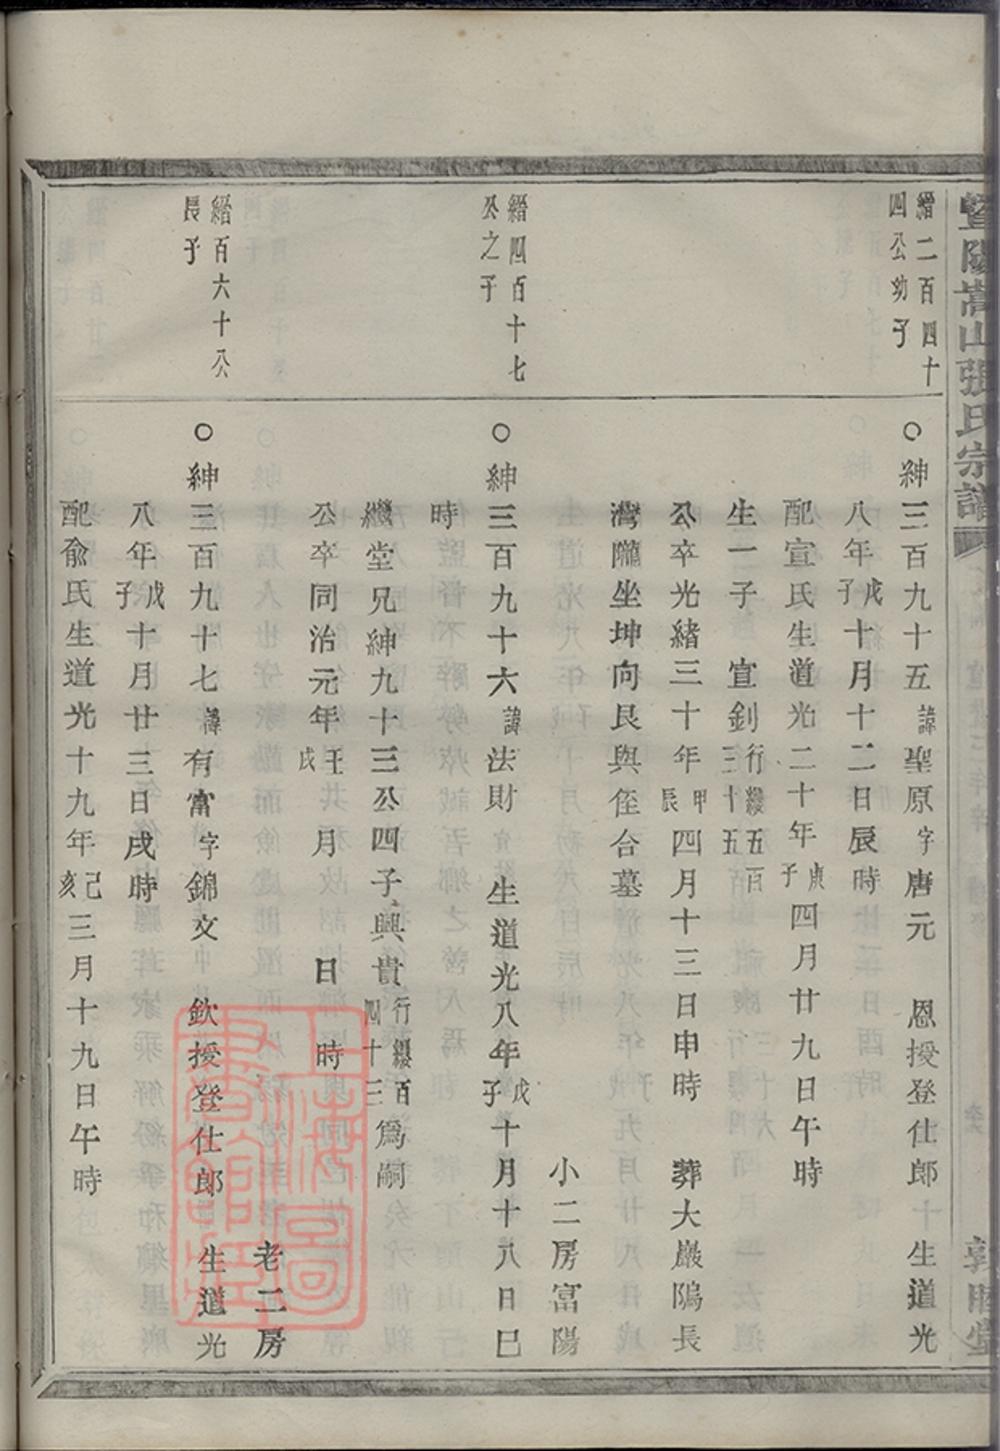 暨陽嵩山張氏宗譜
敦睦堂
縉二百四十
四公幼子
○紳三百九十五諱聖原字唐元 恩授登仕郎 生道光
八年戊子十月十二日辰時
配宣氏生道光二十年庚子四月廿九日午時
生一子 宣釗行纓五百三十五
公卒光緒三十年甲辰四月十三日申時 葬大巖隝長
灣隴坐坤向艮與侄合墓
小二房富陽
縉四百十七
公之子
○紳三百九十六諱法財 生道光八年戊子十月十八日巳
時
繼堂兄紳九十三公四子興貴行纓百四十三爲嗣
公卒同治元年壬戌 月 日 時
老二房
縉百六十公
長子
○紳三百九十七諱有富字錦文 欽授登仕郎 生道光
八年戊子十月廿三日戌時
配俞氏生道光十九年己亥三月十九日午時
上海圖
書館藏